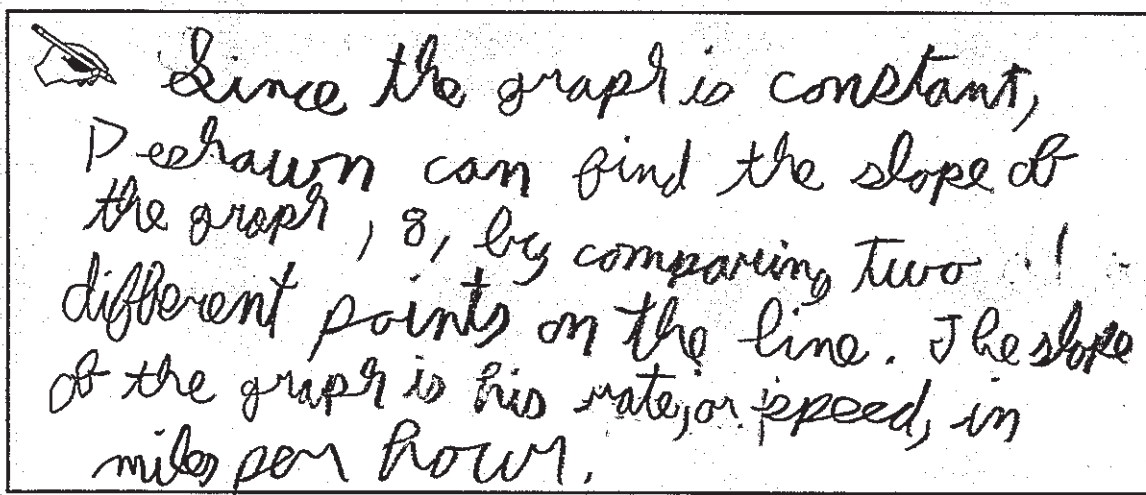 Since the graph is constant,
Deshawn can find the slope of
the graph, 8, by comparing two
different points on the line. The slope
of the graph is his rate, or speed, in
miles per hour.